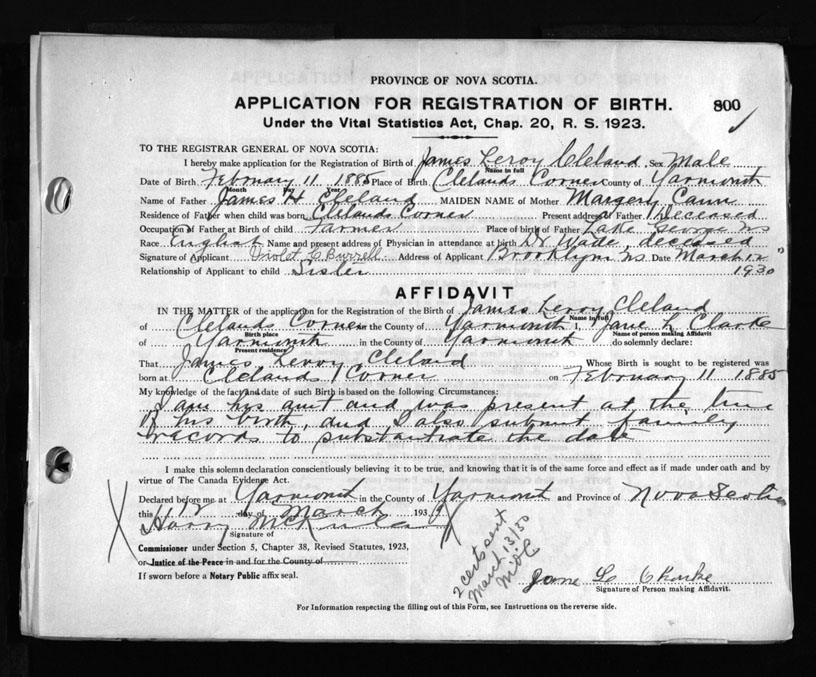 PROVINCE OF NOVA SCOTIA.
APPLICATION FOR REGISTRATION OF BIRTH. 800
Under the Vital Statistics Act, Chap. 20, R. S. 1923.
TO THE REGISTRAR GENERAL OF NOVA SCOTIA:
I hereby make application for the Registration of Birth of James Leroy Cleland Sex Male
Name in full
Date of Birth February 11 1885 Place of Birth Clelands Corner County of Yarmouth
Month Day Year
Name of Father James H Cleland MAIDEN NAME of Mother Margery Cann
Residence of Father when child was born Clelands Corner Present address of Father Deceased
Occupation of Father at Birth of child Farmer Place of birth of Father Lake George NS
Race English Name and present address of Physician in attendance at birth Dr Wade, deceased
Signature of Applicant Violet C Burrell Address of Applicant Brooklyn NS Date March 12
Relationship of Applicant to child Sister 1930
AFFIDAVIT
IN THE MATTER of the application for the Registration of the Birth of James Leroy Cleland
Name in full
of Clelands Corner in the County of Yarmouth I, Jane L Clarke
Birth place Name of person making affidavit
of Yarmouth in the County of Yarmouth do solemnly declare:
Present residence
That James Leroy Cleland Whose Birth is sought to be registered was
born at Clelands Corner on February 11 1885
My knowledge of the fact and date of such Birth is based on the following Circumstances:
I am his aunt and was present at the time
of his birth, and I also submit family
records to substantiate the date
I make this solemn declaration conscientiously believing it to be true, and knowing that it is of the same force and effect as if made under oath and by
virtue of The Canada Evidence Act.
Declared before me at Yarmouth in the County of Yarmouth and Province of Nova Scotia
this 12 day of March 1930
Harry
Signature of
Commissioner under Section 5, Chapter 38, Revised Statutes, 1923,
or Justice of the Peace in and for the County of
If sworn before a Notary Public affix seal.
2 certs sent
March 13/30
Jane L Clarke
Signature of Person making Affidavit.
For Information respecting the filling out of this Form, see Instructions on the reverse side.